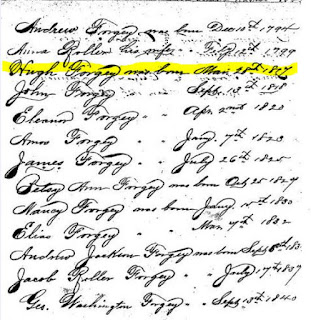 Andrew Forgey was born Dec 10th 1794
Anna Roller his wife " Feby 12th 1799
Hugh Forgey was born Mar. 28th 1817
John Forgey " " Sept. 13th 1818
Eleanor Forgey " " Apr. 2nd 1820
Amos Forgey " " Jany. 7th 1823
James Forgey " " July 26th 1825
Betsy Ann Forgey was born Oct 25 1827
Nancy Forgey was born Jany 1830
Elias Forgey " " Mar 7th 1832
Andrew Jackson Forgey was born Sept
Jacob Roller Forgey " " July 17th 1837
Geo. Washington Forgey " " Sept. 15th 1840